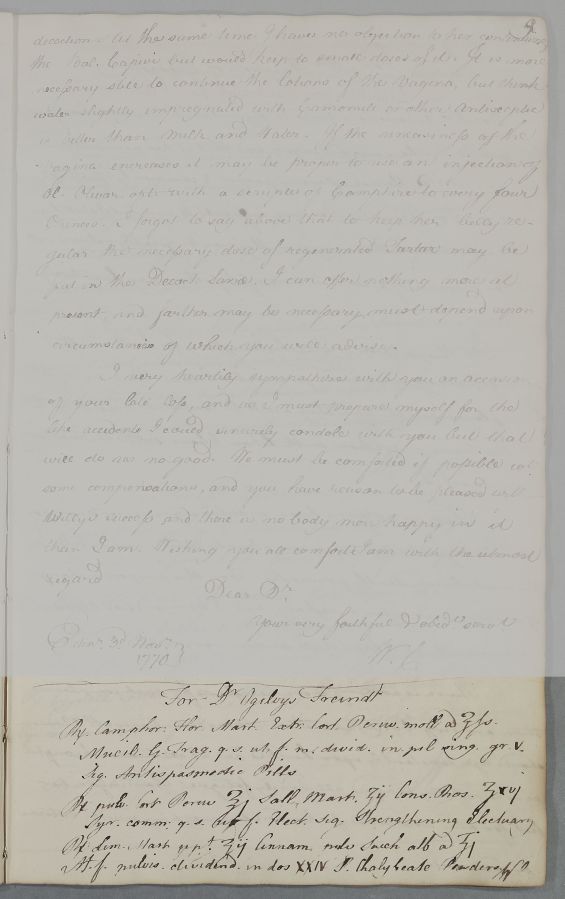 9
decoction. At the same time I have no objection to her continuing
the Bal. Capivi but would keep to small doses of it. It is more
necessary still to continue the lotions of the Vagina, but think
water slightly impregnated with Camomile or other Antiseptic
is better than Milk and Water. If the uneasiness of the
vagina encreases it may be proper to use an injection of
Ol. Olivar. opt. with a scruple of Camphire to every four
Ounces. I forgot to say above that to keep her belly re-
gular the necessary dose of regenerated Tartar may be
put in the Decoct. Sarsæ. I can offer nothing more at
present, and farther may be necessary must depend upon
circumstances of which you will advise.
I very heartily sympathise with you on accasion
of your late loss, and as I must prepare myself for the
like accidents I could sincerely condole with you but that
will do us no good. We must be comforted if possible wt.
some compensations, and you have reason to be pleased wt.
Willy's success and there is no body more happy in it
than I am. Wishing you all comfort I am with the utmost
regard
Dear Dr.
Your very faithful & obedt. servt.
Edinr. 3d. Novr.
1770
W. C.
For Dr. Ogilvys Freindt
Rx. Camphor. Flor. Mart. Extr. Cort. Peruv. moll. a ʒſs.
Mucil. G. Trag. q. s. ut f. m. divid. in pil sing. gr. v.
Sig. Antispasmodic Pills
Rx pulv. Cort Peruv ℥j Sall. Mart. ʒij Cons. Ros. ℥xvj
Syr. comm. q. s. ut f. Elect. Sig. Strengthening Electuary
Rx Lim. Mart. ppt. ʒij Cinnam. Sacch alb a ℥j
Mt. f. pulvis. dividend. in dos XXIV S. Chalybeate Powders